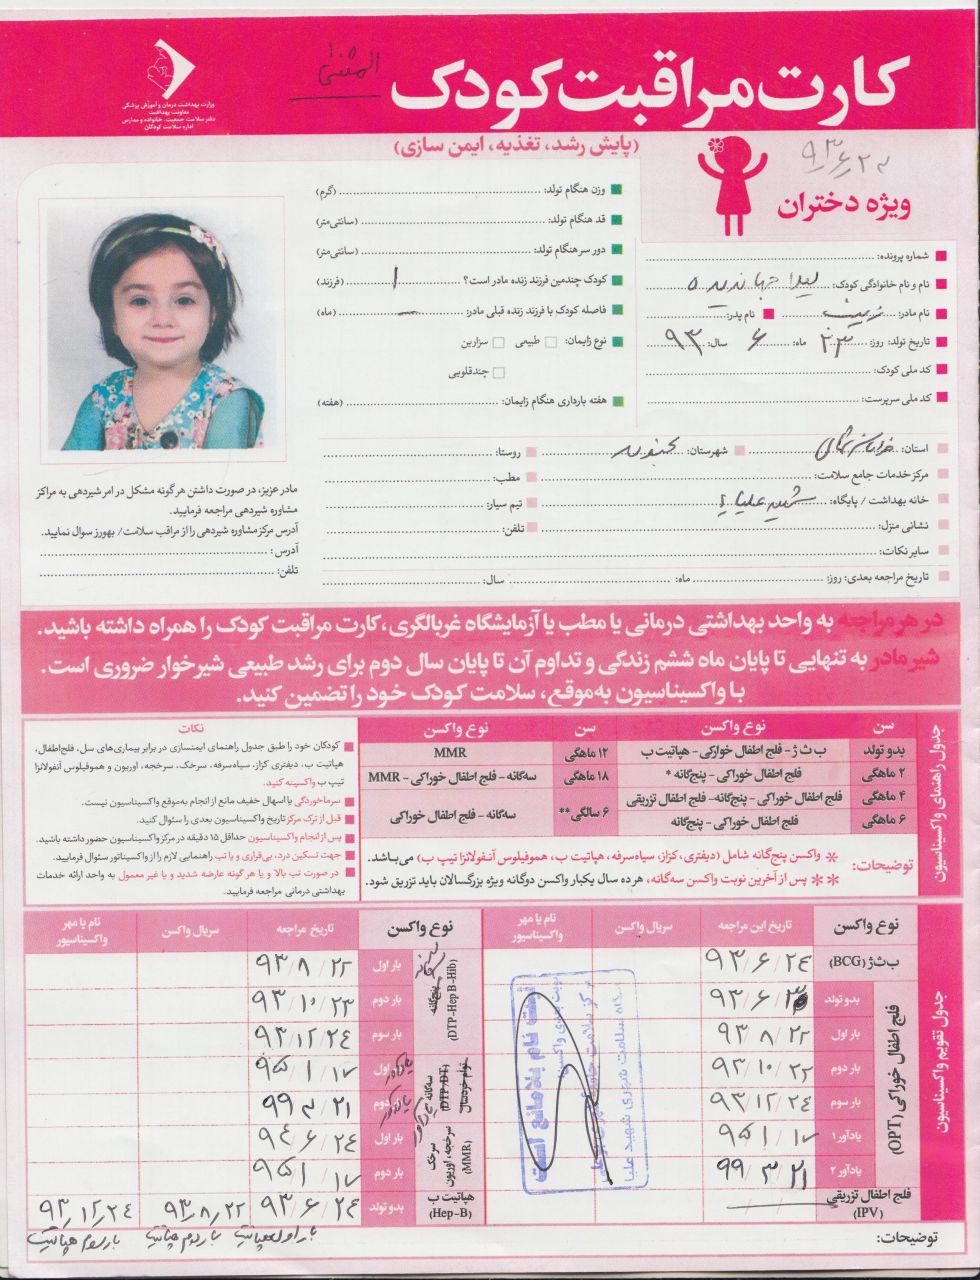 کارت مراقبت کودک
المثنی
وزارت بهداشت درمان و آموزش پزشکی
معاونت بهداشت
دفتر سلامت جمعیت، خانواده و مدارس
اداره سلامت کودکان
(پایش رشد، تغذیه، ایمن سازی)
ویژه دختران
شماره پرونده:
نام و نام خانوادگی کودک:
نام مادر: نام پدر:
تاریخ تولد: روز: ۲۳ ماه: ۶ سال: ۹۳
کد ملی کودک:
کد ملی سرپرست:
وزن هنگام تولد: (گرم)
قد هنگام تولد: (سانتی‌متر)
دور سر هنگام تولد: (سانتی‌متر)
کودک چندمین فرزند زنده مادر است؟ ۱ (فرزند)
فاصله کودک با فرزند زنده قبلی مادر: — (ماه)
نوع زایمان: طبیعی سزارین
چندقلویی
هفته بارداری هنگام زایمان: (هفته)
استان: خراسان شمالی شهرستان: روستا:
مرکز خدمات جامع سلامت: مطب:
خانه بهداشت / پایگاه: شهید علیا تیم سیار:
نشانی منزل: تلفن:
سایر نکات:
تاریخ مراجعه بعدی: روز: ماه: سال:
مادر عزیز، در صورت داشتن هرگونه مشکل در امر شیردهی به مراکز
مشاوره شیردهی مراجعه فرمایید.
آدرس مرکز مشاوره شیردهی را از مراقب سلامت/ بهورز سوال نمایید.
آدرس:
تلفن:
در هر مراجعه به واحد بهداشتی درمانی یا مطب یا آزمایشگاه غربالگری، کارت مراقبت کودک را همراه داشته باشید.
شیر مادر به تنهایی تا پایان ماه ششم زندگی و تداوم آن تا پایان سال دوم برای رشد طبیعی شیرخوار ضروری است.
با واکسیناسیون به‌موقع، سلامت کودک خود را تضمین کنید.
جدول راهنمای واکسیناسیون
سن نوع واکسن سن نوع واکسن
بدو تولد ب ث ژ - فلج اطفال خوراکی - هپاتیت ب ۱۲ ماهگی MMR
۲ ماهگی فلج اطفال خوراکی - پنج‌گانه * ۱۸ ماهگی سه‌گانه - فلج اطفال خوراکی - MMR
۴ ماهگی فلج اطفال خوراکی - پنج‌گانه - فلج اطفال تزریقی ۶ سالگی** سه‌گانه - فلج اطفال خوراکی
۶ ماهگی فلج اطفال خوراکی - پنج‌گانه
توضیحات: * واکسن پنج‌گانه شامل (دیفتری، کزاز، سیاه‌سرفه، هپاتیت ب، هموفیلوس آنفولانزا تیپ ب) می‌باشد.
** پس از آخرین نوبت واکسن سه‌گانه، هر ده سال یکبار واکسن دوگانه ویژه بزرگسالان باید تزریق شود.
نکات
کودکان خود را طبق جدول راهنمای ایمنسازی در برابر بیماری‌های سل، فلج‌اطفال،
هپاتیت ب، دیفتری کزاز، سیاه‌سرفه، سرخک، سرخجه، اوریون و هموفیلوس آنفولانزا
تیپ ب واکسینه کنید.
سرماخوردگی یا اسهال خفیف مانع از انجام به‌موقع واکسیناسیون نیست.
قبل از ترک مرکز تاریخ واکسیناسیون بعدی را سئوال کنید.
پس از انجام واکسیناسیون حداقل ۱۵ دقیقه در مرکز واکسیناسیون حضور داشته باشید.
جهت تسکین درد، بی‌قراری و یا تب راهنمایی لازم را از واکسیناتور سئوال فرمایید.
در صورت تب بالا و یا هر گونه عارضه شدید و یا غیر معمول به واحد ارائه خدمات
بهداشتی درمانی مراجعه فرمایید.
جدول تقویم واکسیناسیون
نوع واکسن تاریخ این مراجعه سریال واکسن نام یا مهر واکسیناسیور
ب ث ژ (BCG) ۹۳/۶/۲۴
فلج اطفال خوراکی (OPT)
بدو تولد ۹۳/۶/
بار اول ۹۳/۸/۲۲
بار دوم ۹۳/۱۰/۲۲
بار سوم ۹۳/۱۲/۲۴
یادآور ۱ ۹۵/۱/۱۷
یادآور ۲ ۹۹/۳/۲۱
فلج اطفال تزریقی (IPV)
ثبت نام بلامانع است
نوع واکسن تاریخ مراجعه سریال واکسن نام یا مهر واکسیناسیور
پنج‌گانه (DTP-Hep B-Hib)
بار اول ۹۳/۸/۲۲
بار دوم ۹۳/۱۰/۲۳
بار سوم ۹۳/۱۲/۲۴
سه‌گانه (DTP/DT) توام خردسال
بار اول یادآور ۹۵/۱/۱۷
بار دوم یادآور ۹۹/۳/۲۱
سرخجه، اوریون سرخک (MMR)
بار اول ۹۴/۶/۲۴
بار دوم ۹۵/۱/۱۷
هپاتیت ب (Hep-B) بدو تولد ۹۳/۶/۲۴ ۹۳/۸/۲۲ ۹۳/۱۲/۲۴
توضیحات: بار اول هپاتیت بار دوم هپاتیت بار سوم هپاتیت